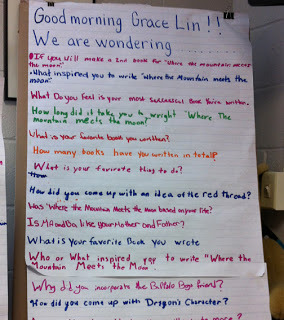 Good morning Grace Lin!!
We are wondering..........
If you will make a 2nd book for "Where the mountain meets
the moon"
What inspired you to write "Where the Mountain meets the
moon"
What Do you feel is your most successful Book You've written.
How long did it take you to wright "Where The
mountain meets the moon"?
What is your favorite book you written?
How many books have you written in total?
What is your favorite thing to do?
How did you come up with an idea of the red thread?
Was "Where the Mountain Meets the moon based on your life?
Is MA and Ba like your Mother and Father?
What is Your Favorite Book you wrote
Who or What inspired you to write "Where the
Mountain Meets the Moon.
Why did you incorporate the Buffalo Boys friend?
How did you come up with Dragon's Character?